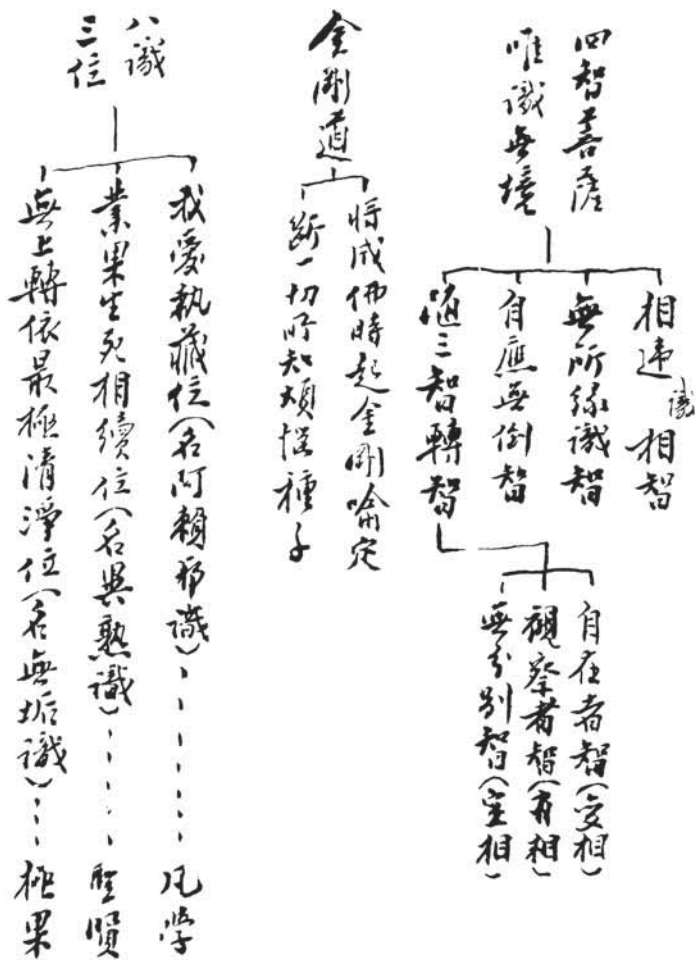 四智菩薩
唯識無境
相違識相智
無所緣識智
自應無倒智
隨三智轉智
自在者智(變相)
觀察者智(有相)
無分別智(空相)
金剛道
將成佛時起金剛喻定
斷一切所知煩惱種子
八識
三位
我愛執藏位(名阿賴耶識)、、、、、、凡學
業果生死相續位(名異熟識)、、、、、聖賢
無上轉依最極清淨位(名無垢識)、、、極果